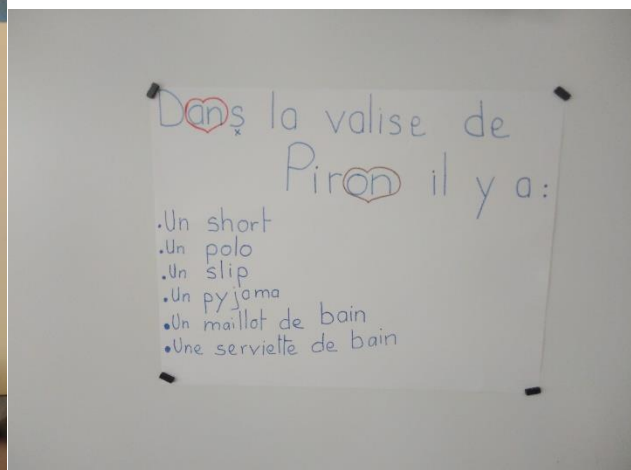 Dans la valise de
Piron il y a:
.Un short
.Un polo
.Un slip
.Un pyjama
•Un maillot de bain
•Une serviette de bain